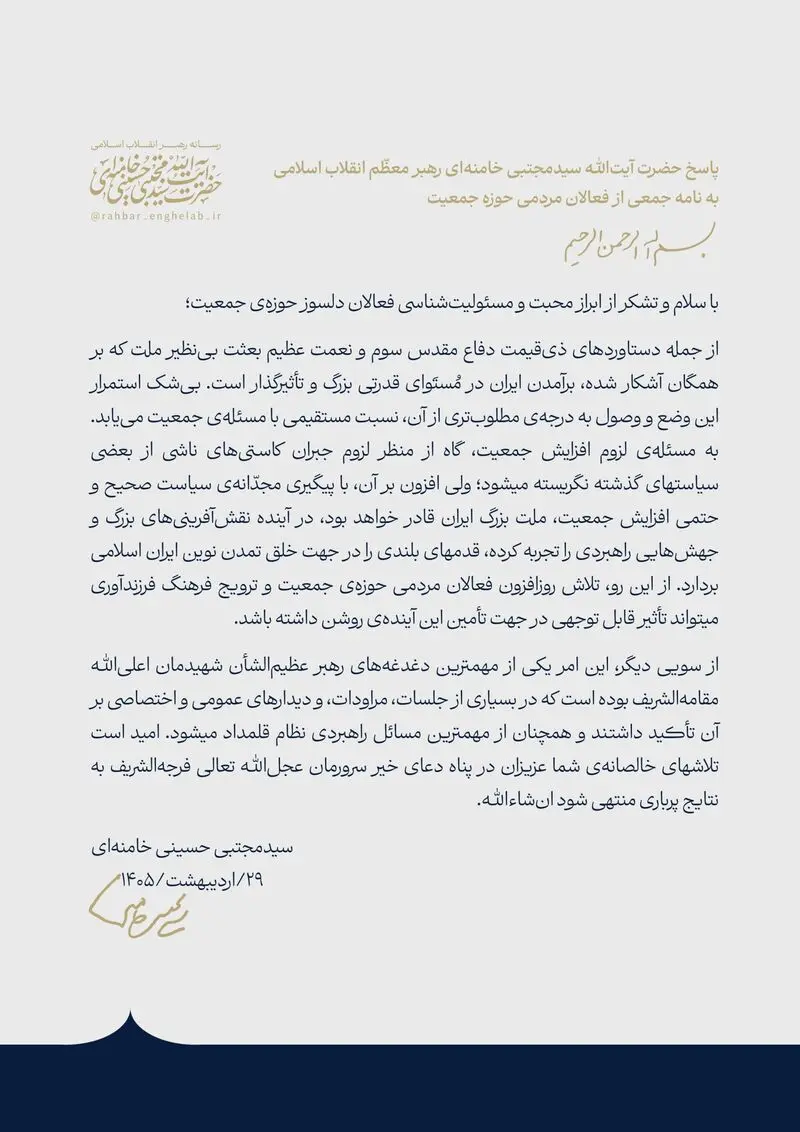 رسانه رهبر انقلاب اسلامی
حضرت آیت‌الله سیدمجتبی حسینی خامنه‌ای
@rahbar_enghelab_ir
پاسخ حضرت آیت‌الله سیدمجتبی خامنه‌ای رهبر معظّم انقلاب اسلامی
به نامه جمعی از فعالان مردمی حوزه جمعیت
بسم الله الرحمن الرحیم
با سلام و تشکر از ابراز محبت و مسئولیت‌شناسی فعالان دلسوز حوزه‌ی جمعیت؛
از جمله دستاوردهای ذی‌قیمت دفاع مقدس سوم و نعمت عظیم بعثت بی‌نظیر ملت که بر
همگان آشکار شده، برآمدن ایران در مُستَوای قدرتی بزرگ و تأثیرگذار است. بی‌شک استمرار
این وضع و وصول به درجه‌ی مطلوب‌تری از آن، نسبت مستقیمی با مسئله‌ی جمعیت می‌یابد.
به مسئله‌ی لزوم افزایش جمعیت، گاه از منظر لزوم جبران کاستی‌های ناشی از بعضی
سیاستهای گذشته نگریسته میشود؛ ولی افزون بر آن، با پیگیری مجدّانه‌ی سیاست صحیح و
حتمی افزایش جمعیت، ملت بزرگ ایران قادر خواهد بود، در آینده نقش‌آفرینی‌های بزرگ و
جهش‌هایی راهبردی را تجربه کرده، قدمهای بلندی را در جهت خلق تمدن نوین ایران اسلامی
بردارد. از این رو، تلاش روزافزون فعالان مردمی حوزه‌ی جمعیت و ترویج فرهنگ فرزندآوری
میتواند تأثیر قابل توجهی در جهت تأمین این آینده‌ی روشن داشته باشد.
از سویی دیگر، این امر یکی از مهمترین دغدغه‌های رهبر عظیم‌الشأن شهیدمان اعلی‌الله
مقامه‌الشریف بوده است که در بسیاری از جلسات، مراودات، و دیدارهای عمومی و اختصاصی بر
آن تأکید داشتند و همچنان از مهمترین مسائل راهبردی نظام قلمداد میشود. امید است
تلاشهای خالصانه‌ی شما عزیزان در پناه دعای خیر سرورمان عجل‌الله تعالی فرجه‌الشریف به
نتایج پرباری منتهی شود ان‌شاءالله.
سیدمجتبی حسینی خامنه‌ای
۲۹/اردیبهشت/۱۴۰۵